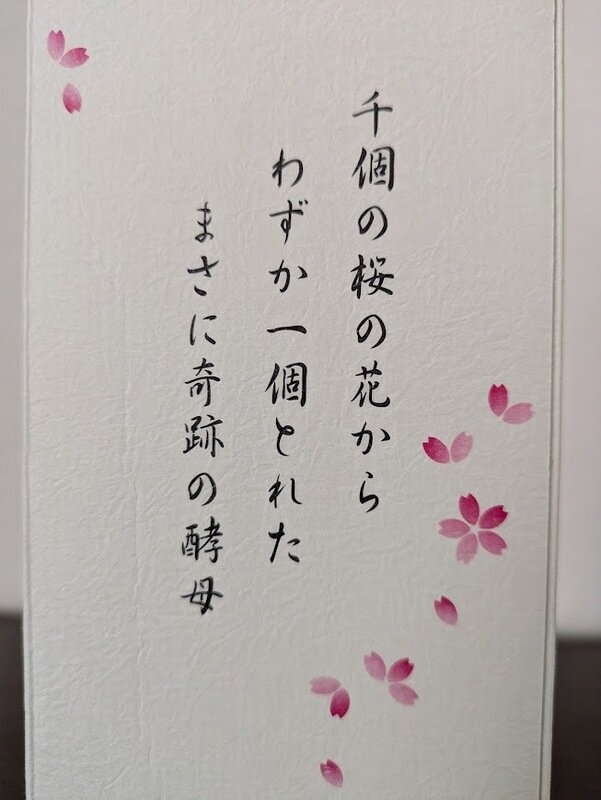 千個の桜の花から
わずか一個とれた
まさに奇跡の酵母